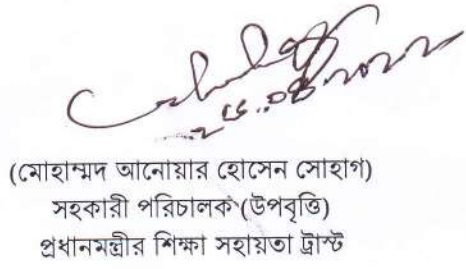 (মোহাম্মদ আনোয়ার হোসেন সোহাগ)
সহকারী পরিচালক (উপবৃত্তি)
প্রধানমন্ত্রীর শিক্ষা সহায়তা ট্রাস্ট